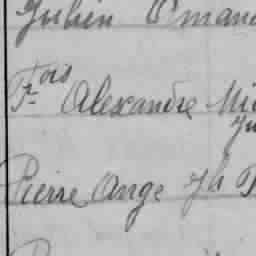 Julien Emman
Fois Alexandre Mi
Ju
Pierre Ange Jh